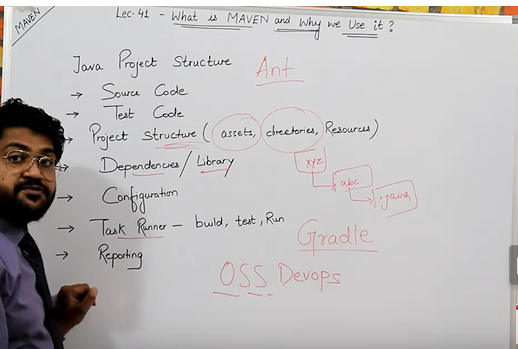 MAVEN
Lec-41 - What is MAVEN and Why we Use it?
Java Project Structure
Ant
→ Source Code
→ Test Code
→ Project Structure (assets, directories, Resources)
→ Dependencies / Library
xyz
abc
.java
→ Configuration
→ Task Runner - build, test, Run
Gradle
→ Reporting
OSS Devops